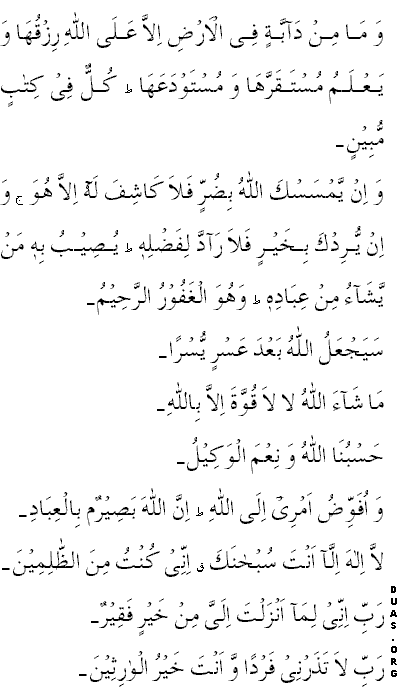 وَ مَا مِنْ دَآبَّةٍ فِى الْاَرْضِ اِلَّا عَلَى اللهِ رِزْقُهَا وَ
يَعْلَمُ مُسْتَقَرَّهَا وَ مُسْتَوْدَعَهَا ؕ كُلٌّ فِىْ كِتٰبٍ
مُّبِيْنٍ۔
وَ اِنْ يَّمْسَسْكَ اللهُ بِضُرٍّ فَلاَ كَاشِفَ لَهٗ اِلاَّ هُوَ ۚ وَ
اِنْ يُّرِدْكَ بِخَيْرٍ فَلاَ رَآدَّ لِفَضْلِهٖ ؕ يُصِيْبُ بِهٖ مَنْ
يَّشَآءُ مِنْ عِبَادِهٖ ؕ وَهُوَ الْغَفُوْرُ الرَّحِيْمُ۔
سَيَجْعَلُ اللهُ بَعْدَ عَسْرٍ يُّسْرًا۔
مَا شَآءَ اللهُ لا لاَ قُوَّةَ اِلاَّ بِاللهِ۔
حَسْبُنَا اللهُ وَ نِعْمَ الْوَكِيْلُ۔
وَ اُفَوِّضُ اَمْرِىْٓ اِلَى اللهِ ؕ اِنَّ اللهَ بَصِيْرٌم بِالْعِبَادِ۔
لاَّ اِلٰهَ اِلَّآ اَنْتَ سُبْحٰنَكَ ۖ اِنِّىْ كُنْتُ مِنَ الظّٰلِمِيْنَ۔
رَبِّ اِنِّىْ لِمَآ اَنْزَلْتَ اِلَىَّ مِنْ خَيْرٍ فَقِيْرٌ۔
رَبِّ لاَ تَذَرْنِىْ فَرْدًا وَّ اَنْتَ خَيْرُ الْوٰرِثِيْنَ۔
DUAS.ORG